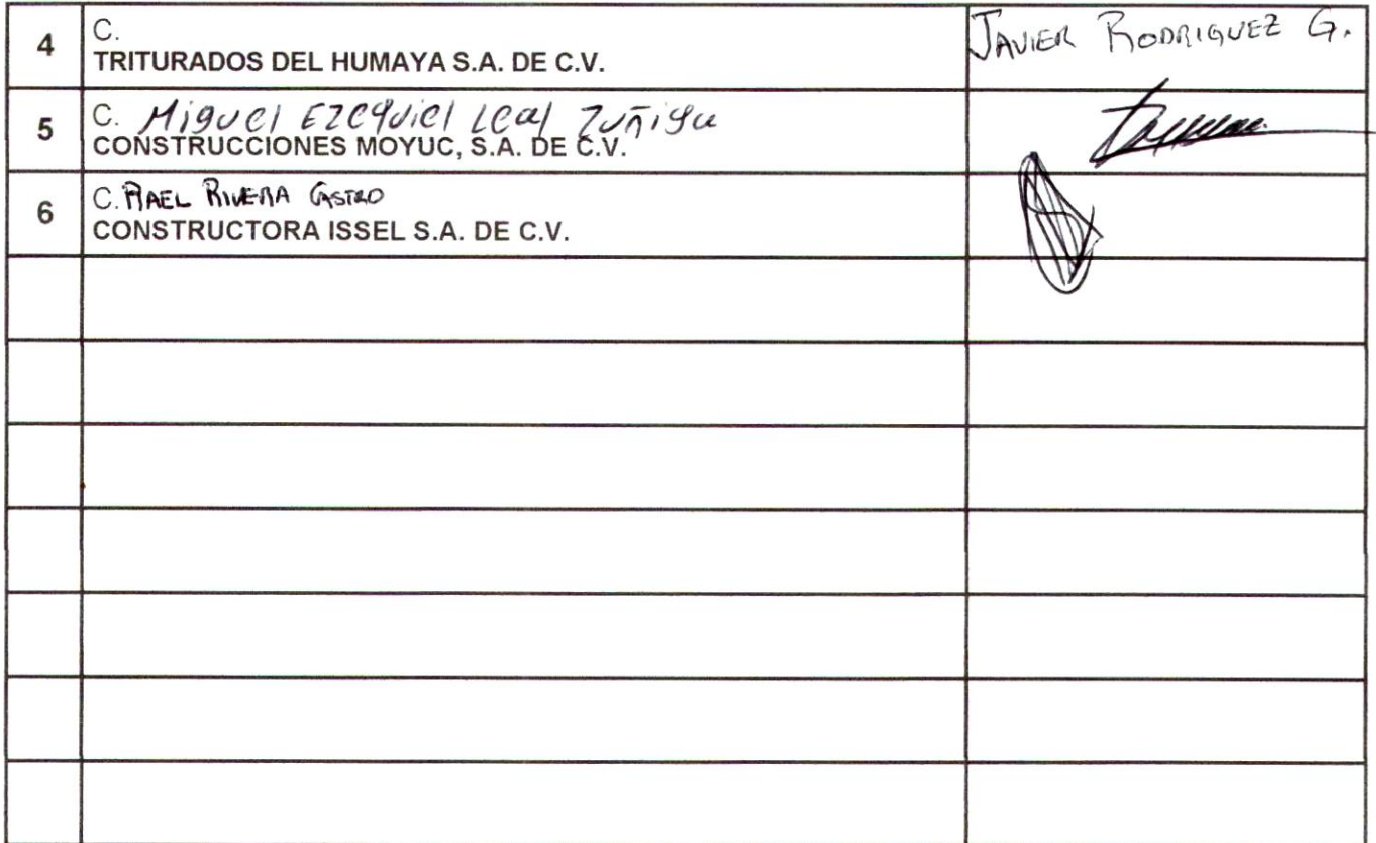 4
C.
TRITURADOS DEL HUMAYA S.A. DE C.V.
JAVIER RODRIGUEZ G.
5
C. Miguel Ezequiel Leal Zuñiga
CONSTRUCCIONES MOYUC, S.A. DE C.V.
6
C. RIVERA CASTRO
CONSTRUCTORA ISSEL S.A. DE C.V.